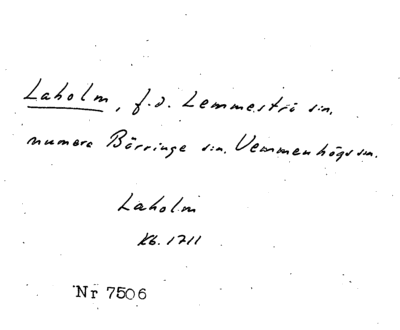 Laholm, f.d. Lemmeströ sn.
numera Börringe sn. Vemmenhögs sn.
Laholm
Kb. 1711
Nr 7506